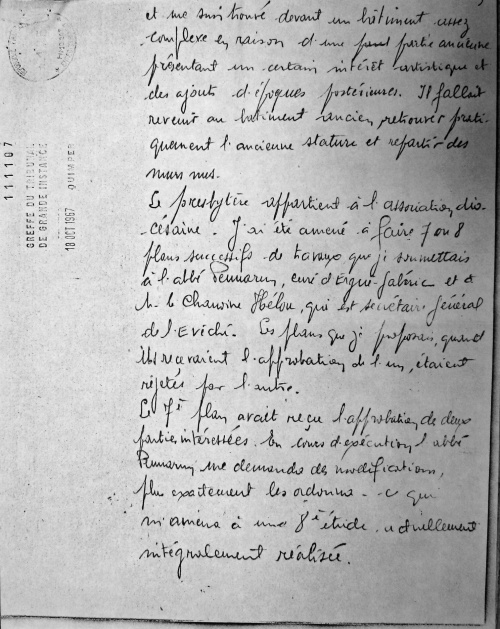 et me suis trouvé devant un bâtiment assez
complexe en raison d'une part partie ancienne
présentant un certain intérêt artistique et
des ajouts d'époques postérieures. Il fallait
revenir au bâtiment ancien, retrouver prati-
quement l'ancienne stature et repartir des
murs nus.
Le presbytère appartient à l'association dio-
césaine. J'ai été amené à faire 7 ou 8
plans successifs de travaux que je soumettais
à l'abbé Pennarun, curé d'Ergué-Gabéric et à
M. le Chanoine Hélou, qui est secrétaire général
de l'Evêché. Les plans que je proposais, quand
ils recevaient l'approbation de l'un, étaient
rejetés par l'autre.
Le 7è plan avait reçu l'approbation de deux
parties intéressées. En cours d'exécution l'abbé
Pennarun me demanda des modifications,
plus exactement les ordonna - ce qui
m'amena à une 8è étude actuellement
intégralement réalisée.
111107
GREFFE DU TRIBUNAL
DE GRANDE INSTANCE
18 OCT 1967 QUIMPER